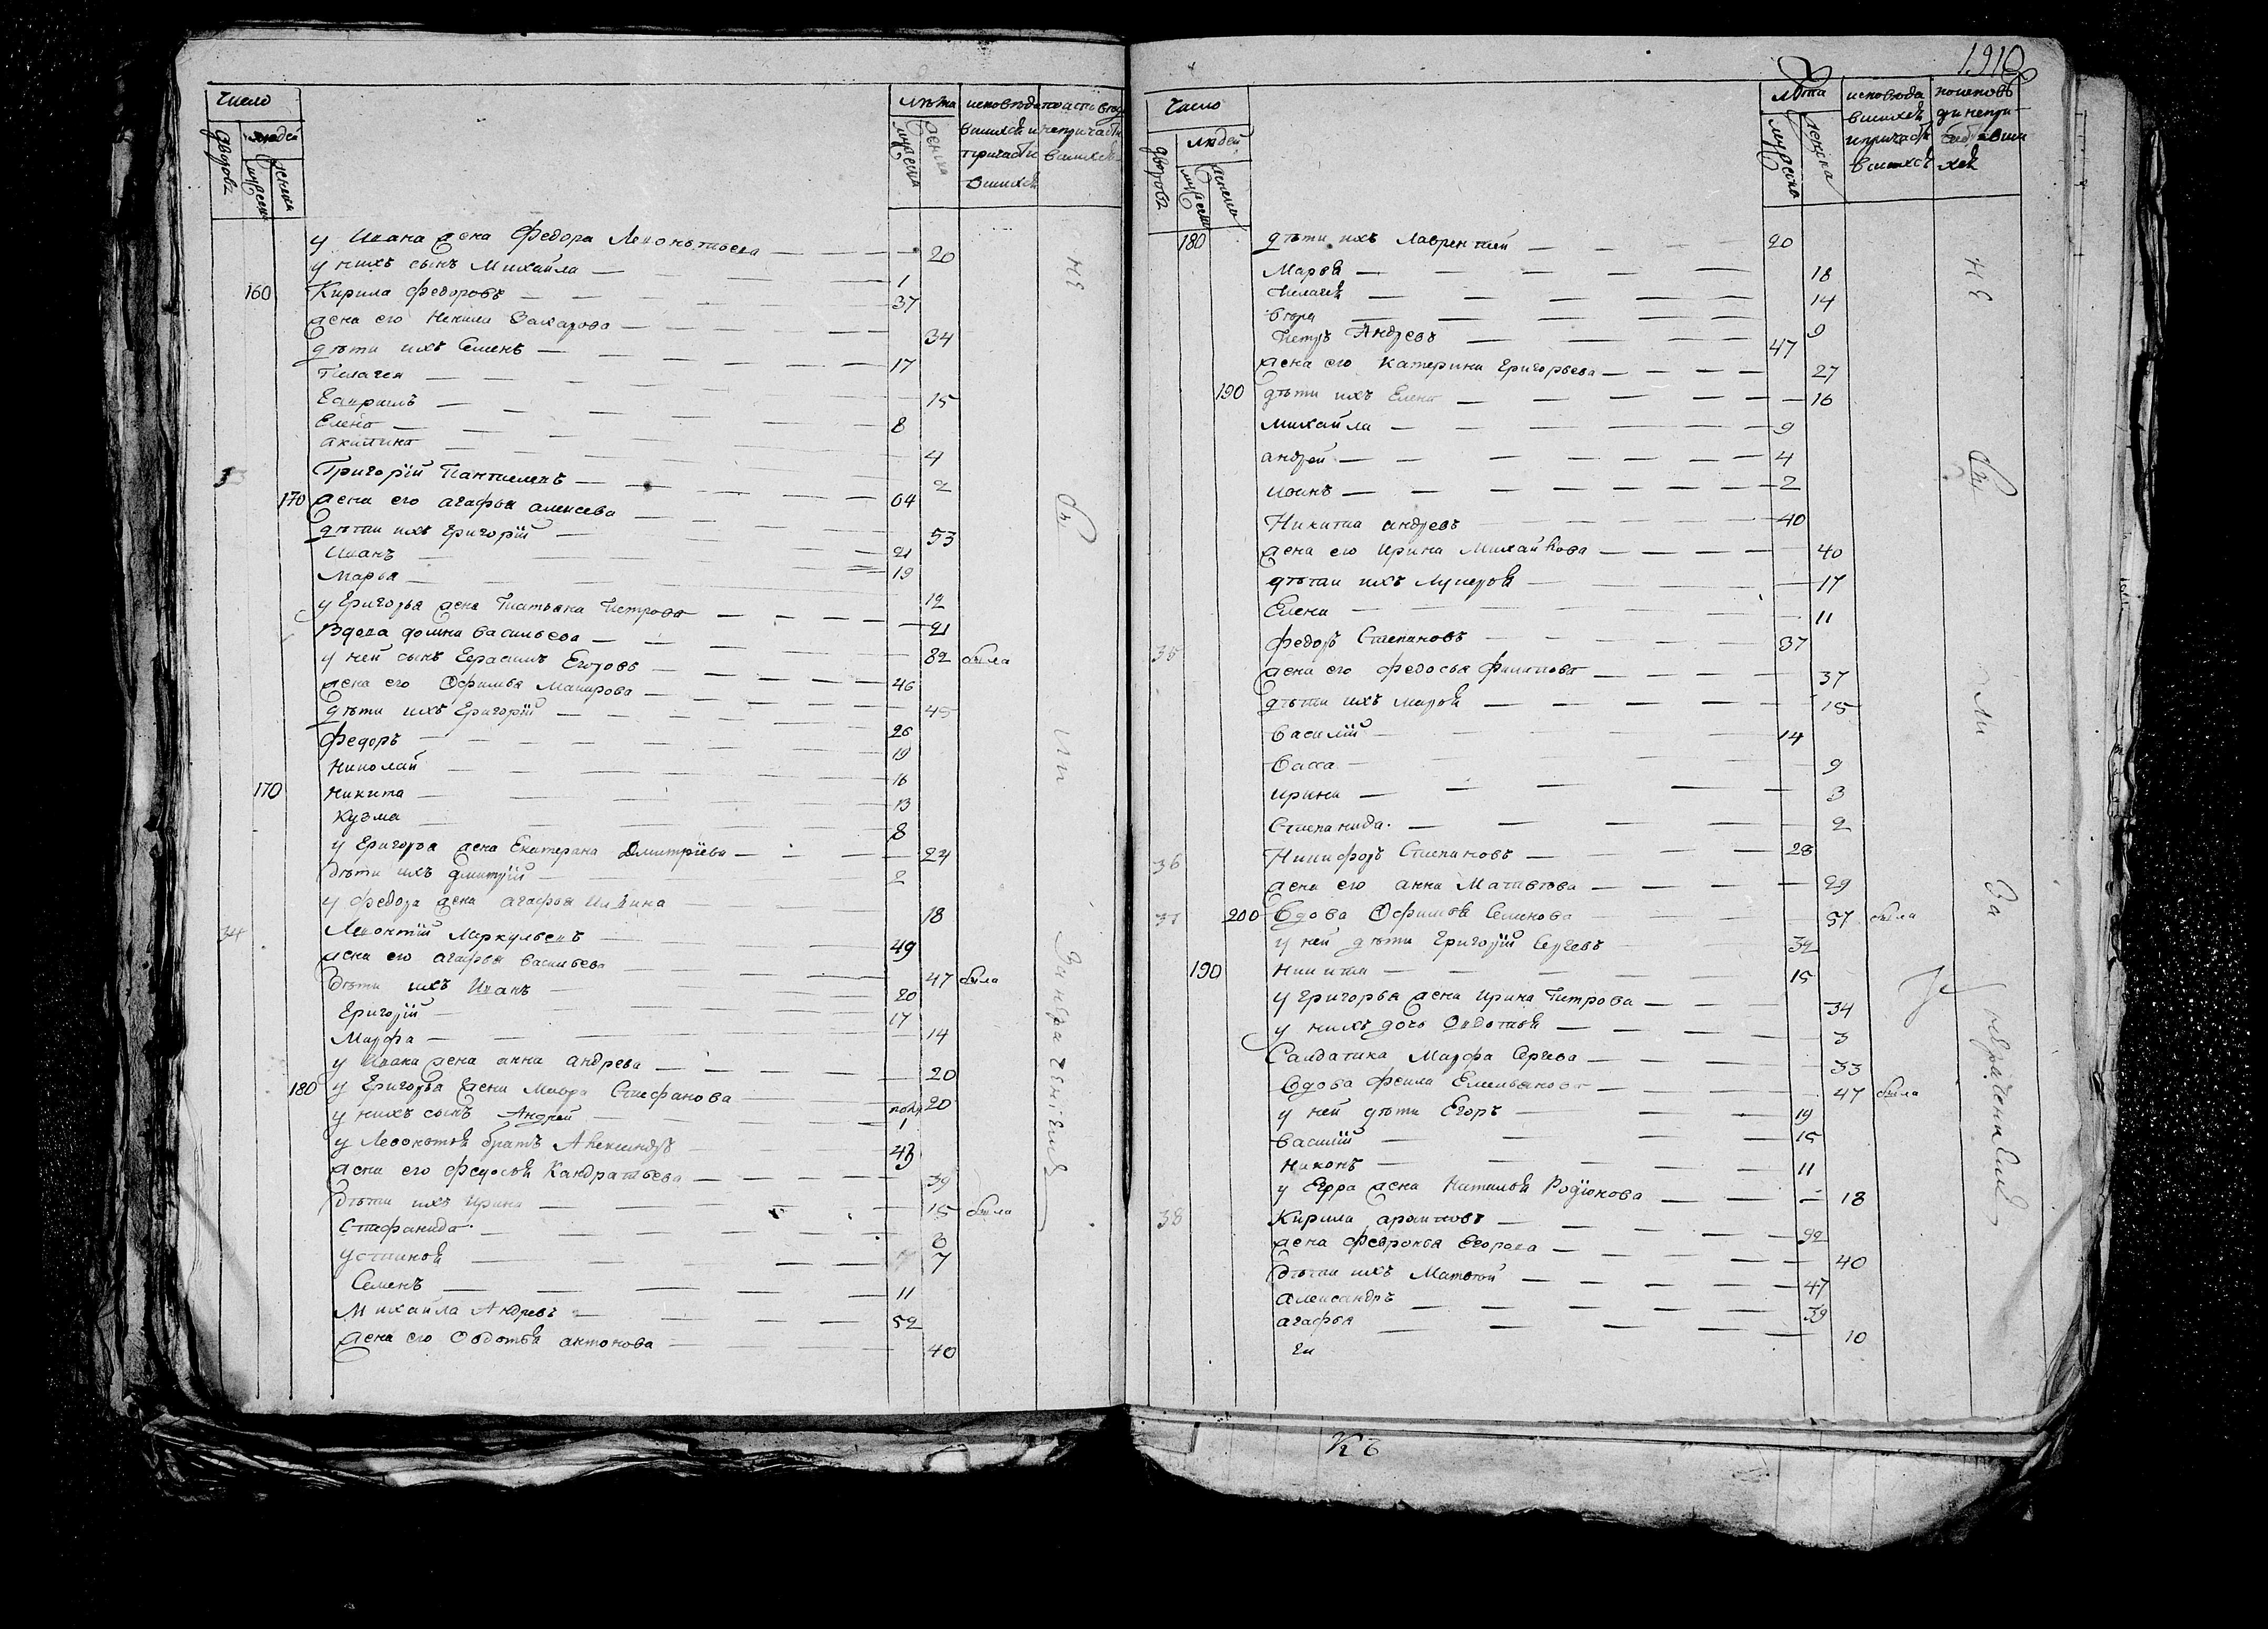 число
людей
дворовъ
мужеска
женска
лѣта
мужеска
женска
исповѣда
вшихся и
причасти
вшихся
не
бы
ли
за нерачениемъ
у Ивана жена Федора Леонтьева 20
у нихъ сынъ Михайла 1
160 Кирила Федоровъ 37
жена его Ненила Захарова 34
дѣти ихъ Семенъ 17
Пелагея 15
Гаврилъ 8
Елена 4
Акилина 2
Григорій Пантиелевъ 64
170 жена его агафья алексева 53
дѣти ихъ Григорій 21
Иванъ 19
Марья 12
у Григорья жена Татьяна Петрова 21
Вдова домна васильева 82 была
у ней сынъ Герасимъ Егоровъ 46
жена его Офимья Макарова 45
дѣти ихъ Григорій 26
Федоръ 19
Николай 16
170 Никита 13
Кузма 8
у Григорья жена Екатерина Дмитріева 24
дѣти ихъ дмитрій 2
у Федора жена агафья Ильина 18
34 Леонтій Меркульевъ 49
жена его агафья васильева 47 была
дѣти ихъ Иванъ 20
Григорій 17
Марфа 14
у Ивана жена анна андрева 20
180 у Григорья жена Мавра Стефанова 20
у нихъ сынъ Андрей 1
у Леонтья братъ Александръ 43
жена его Федосья Кандратьева 39
дѣти ихъ Ирина 15 была
Стефанида 8
устинья 7
Семенъ 11
Михайла Андревъ 52
жена его Овдотья антонова 40
1910
число
людей
дворовъ
мужеска
женска
лѣта
мужеска
женска
исповѣда
вшихся
и причасти
вшихся
не
бы
ли
За нерачениемъ
180 дѣти ихъ Лаврентей 20
Марья 18
Пелагея 14
вера 9
Петръ Андревъ 47
жена его Катерина Григорьева 27
190 дѣти ихъ Елена 16
Михайла 9
андрей 4
Иванъ 2
Никита андревъ 40
жена его Ирина Михайлова 40
дѣти ихъ Лукерья 17
Елена 11
35 Федоръ Степановъ 37
жена его Федосья Филипова 37
дѣти ихъ Марья 15
василій 14
васса 9
ирина 3
Степанида 2
36 Никифоръ Степановъ 28
жена его анна Матвѣева 29
37 200 Вдова Офимья Семенова 57 была
у ней дѣти Григорій Сергевъ 32
190 Никита 15
у Григорья жена Ирина Петрова 34
у нихъ дочь Овдотья 3
Салдатика Марфа Сергева 33
Вдова Фекла Емельянова 47 была
у ней дѣти Егоръ 19
василій 15
Никонъ 11
у Егора жена Наталья Родіонова 18
38 Кирила архиповъ 92
жена Февронья Егорова 40
дѣти ихъ Матвей 47
александръ 39
агафья 10